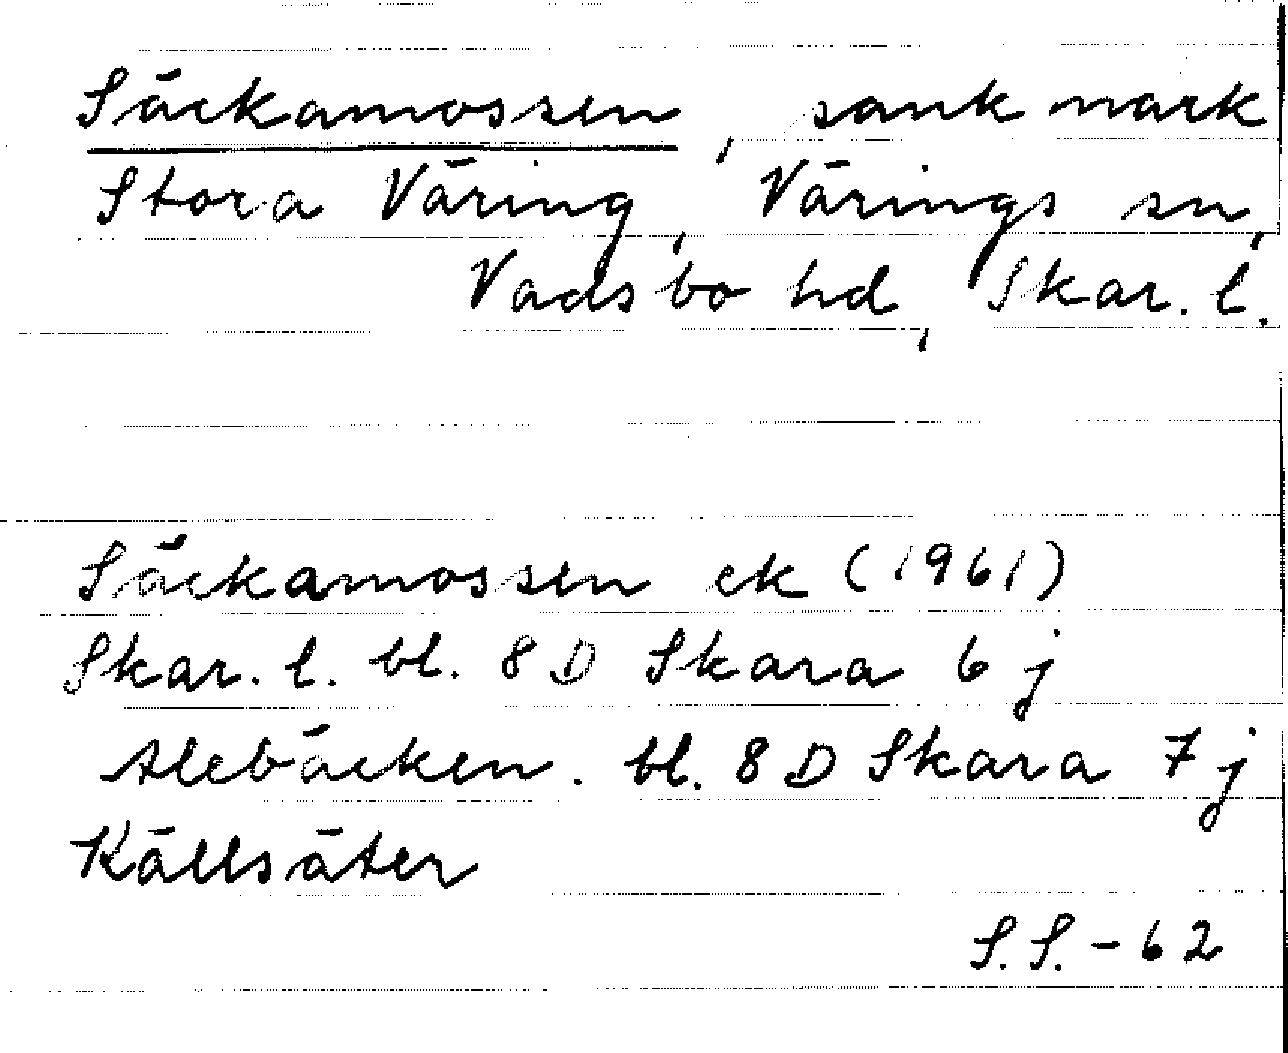 Säckamossen, sank mark
Stora Väring, Värings sn,
Vadsbo hd, Skar. l.
Säckamossen ek (1961)
Skar. l. bl. 8 D Skara 6 j
Alebäcken. bl. 8 D Skara 7 j
Källsäter
S.S.-62